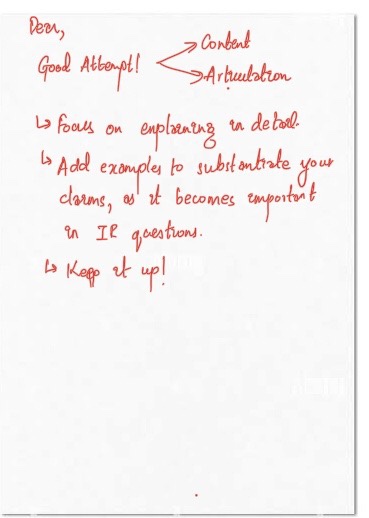 Dear,
Good Attempt! → Content
→ Articulation
↳ Focus on explaining in detail.
↳ Add examples to substantiate your
claims, as it becomes important
in IR questions.
↳ Keep it up!